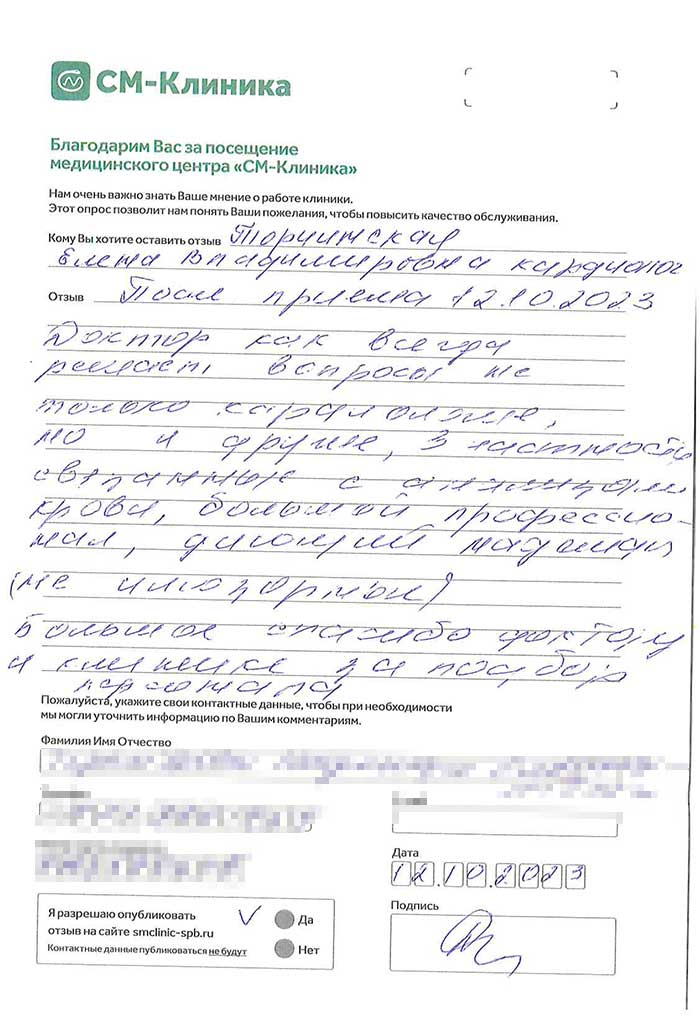 СМ-Клиника
Благодарим Вас за посещение
медицинского центра «СМ-Клиника»
Нам очень важно знать Ваше мнение о работе клиники.
Этот опрос позволит нам понять Ваши пожелания, чтобы повысить качество обслуживания.
Кому Вы хотите оставить отзыв Торчинская
Елена Владимировна кардиолог
Отзыв После приема 12.10.2023
Доктор как всегда
решает вопросы не
только
но и другие, в частности
связанные с анализами
крови, большой профессио-
нал,
(не
Большое спасибо доктору
и клинике за подбор
персонала
Пожалуйста, укажите свои контактные данные, чтобы при необходимости
мы могли уточнить информацию по Вашим комментариям.
Фамилия Имя Отчество
Дата
12.10.2023
Подпись
Я разрешаю опубликовать
отзыв на сайте smclinic-spb.ru
Контактные данные публиковаться не будут
Да
Нет